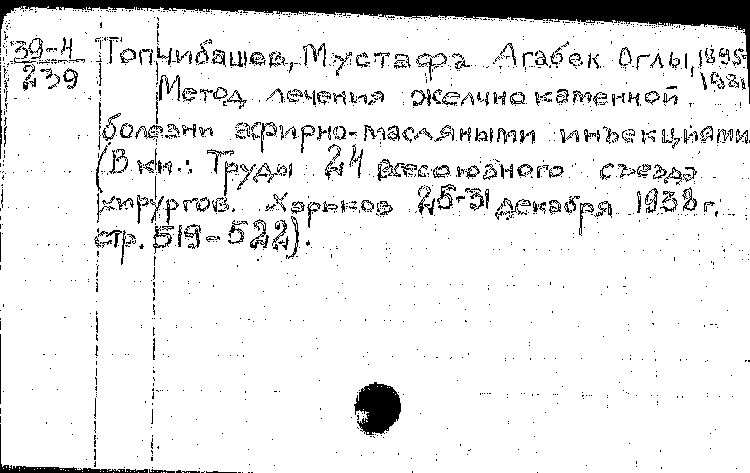 39-4 Топчибашев, Мустафа Агабек Оглы, 1895-
239 1981
Метод лечения желчнокаменной
болезни эфирно-масляными инъекциями
(В кн.: Труды 24 всесоюзного съезда
хирургов. Харьков 25-31 декабря 1938 г.
стр. 519-522).